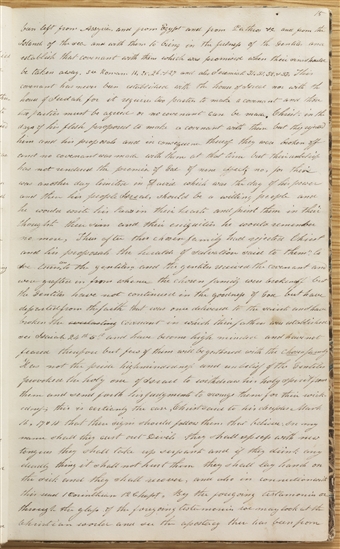 15
been left from Assyria and from Egypt and from Pathros &c and from the
Islands of the sea, and with them to bring in the fulness of the Gentiles and
establish that covenant with them which was promised when their sins should
be taken away. see Romans 11, 25, 26 & 27 and also Jeremiah 31. 31, 32 & 33. This
covenant has never been established with the house of Israel nor with the
house of Judah for it requires two parties to make a covenant and those
two parties must be agreed or no covenant can be made. Christ in the
days of his flesh proposed to make a covenant with them but they rejected
him and his proposals and in consequence thereof they were broken off
and no covenant was made with them at that time but their unbelief
has not rendered the promise of God of none effect; no, for there
was another day limited in David which was the day of his power
and then his people Israel, should be a willing people and
he would write his laws in their hearts and print them in their
thoughts their sins and their iniquities he would remember
no more. Thus after this chosen family had rejected Christ
and his proposals the heralds of salvation said to them "lo
we turn to the gentiles" and the gentiles received the covenant and
were grafted in from whence the chosen family were broken off but
the Gentiles have not continued in the goodness of God but have
departed from the faith that was once delivered to the saints and have
broken the everlasting covenant in which their fathers were established
see Isaiah 24th 5th and have become high minded and have not
feared therefore but few of them will be gathered with the chosen family
Has not the pride highmindedness and unbelief of the Gentiles
provoked the holy one of Israel to withdraw his holy spirit from
them and send forth his judgments to scourge them for their wickedness;
this is certainly the case. Christ said to his deciples Mark
16, 17, 18 that these signs should follow them that believe. In my
name shall they cast out Devils they shall speak with new
tongues they shall take up serpants and if they drink any
deadly thing it shall not hurt them they shall lay hands on
the sick and they shall recover, and also in connection with
this read 1 Corinthians 12 Chapt. By the foregoing testimonies or
through the glass of the foregoing testimonies we may look at the
Christian world and see the apostacy there has been from